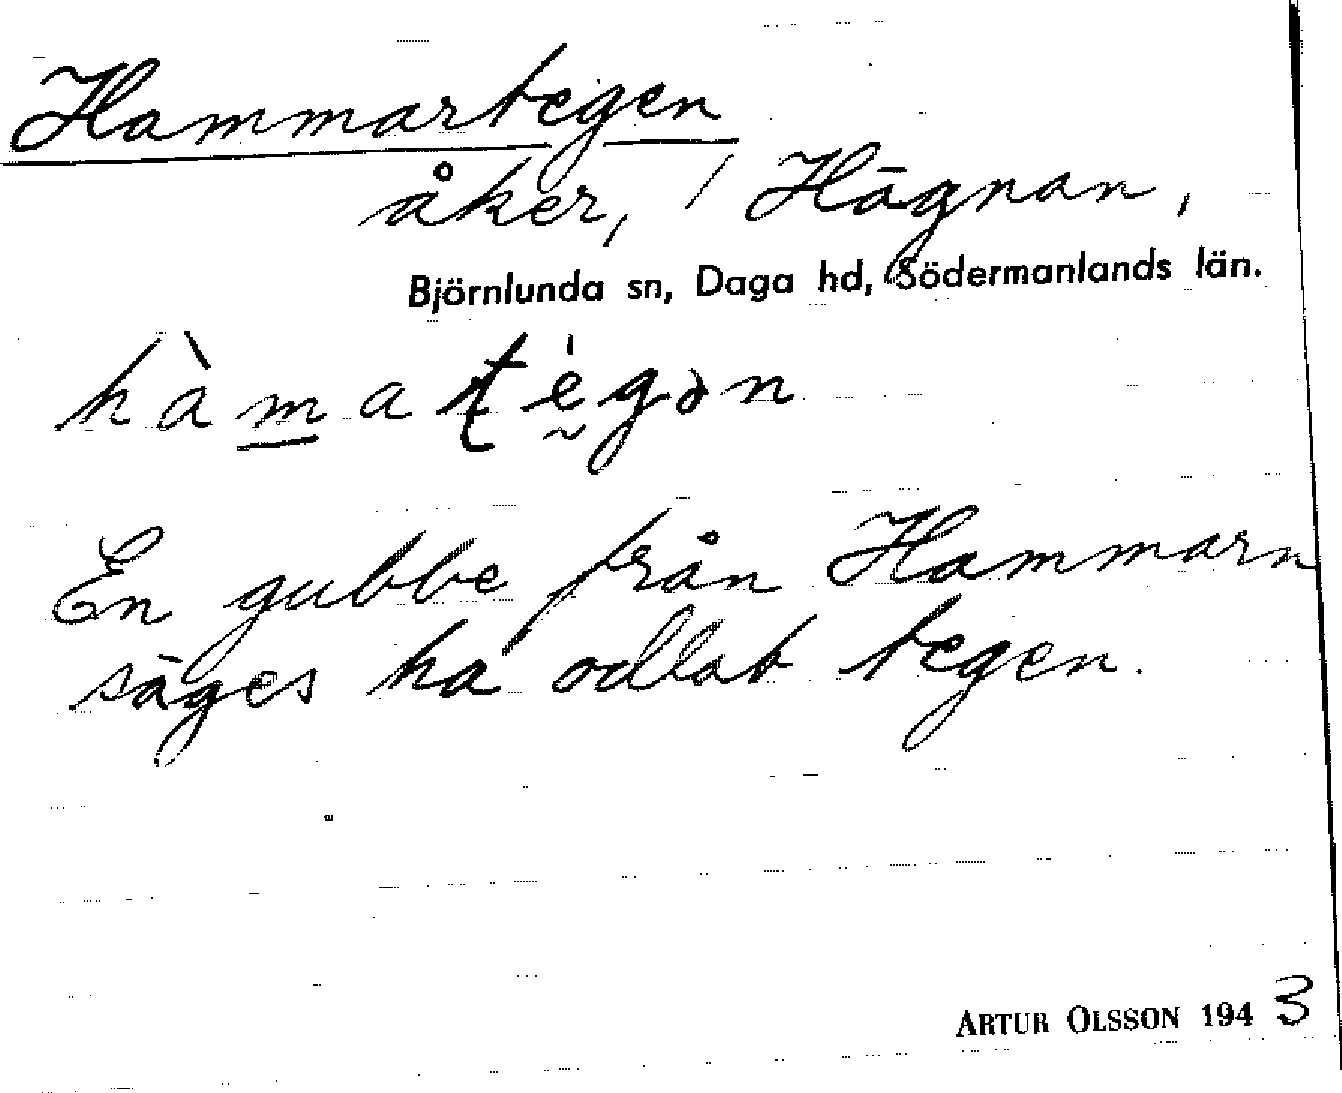 Hammartegen
åker, / Hägnan,
Björnlunda sn, Daga hd, Södermanlands län.
hàmaʈégən
En gubbe från Hammarn
säges ha odlat tegen.
ARTUR OLSSON 1943